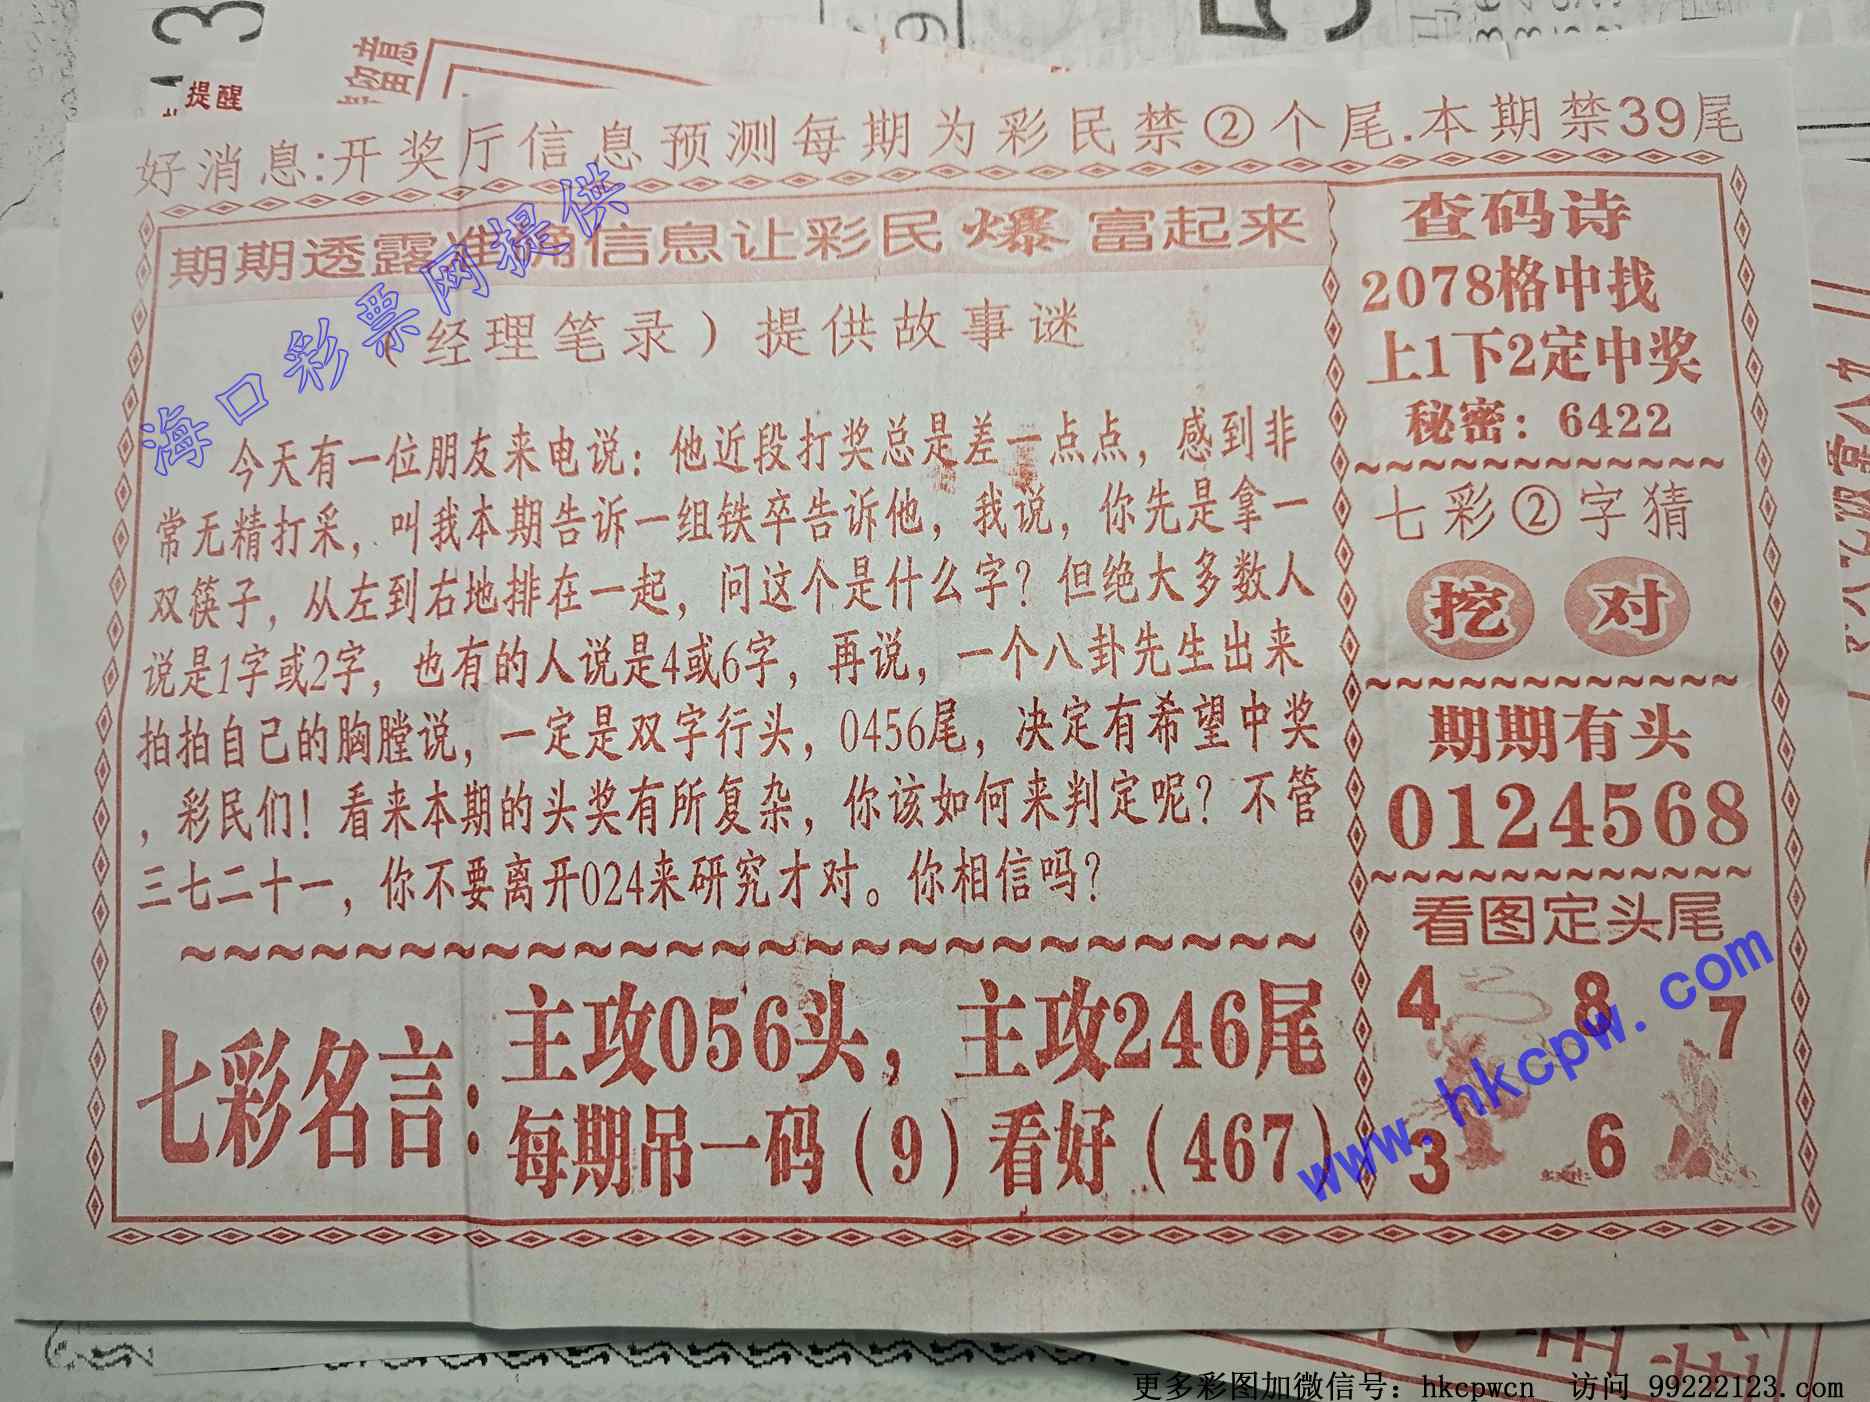 提醒
好消息:开奖厅信息预测每期为彩民禁②个尾.本期禁39尾
期期透露准确信息让彩民爆富起来
（经理笔录）提供故事谜
今天有一位朋友来电说：他近段打奖总是差一点点，感到非
常无精打采，叫我本期告诉一组铁卒告诉他，我说，你先是拿一
双筷子，从左到右地排在一起，问这个是什么字？但绝大多数人
说是1字或2字，也有的人说是4或6字，再说，一个八卦先生出来
拍拍自己的胸膛说，一定是双字行头，0456尾，决定有希望中奖
，彩民们！看来本期的头奖有所复杂，你该如何来判定呢？不管
三七二十一，你不要离开024来研究才对。你相信吗？
七彩名言：
主攻056头，主攻246尾
每期吊一码（9）看好（467）
查码诗
2078格中找
上1下2定中奖
秘密：6422
七彩②字猜
挖 对
期期有头
0124568
看图定头尾
4 8 7
3 6
海口彩票网提供
www.hkcpw.com
更多彩图加微信号：hkcpwcn 访问 99222123.com